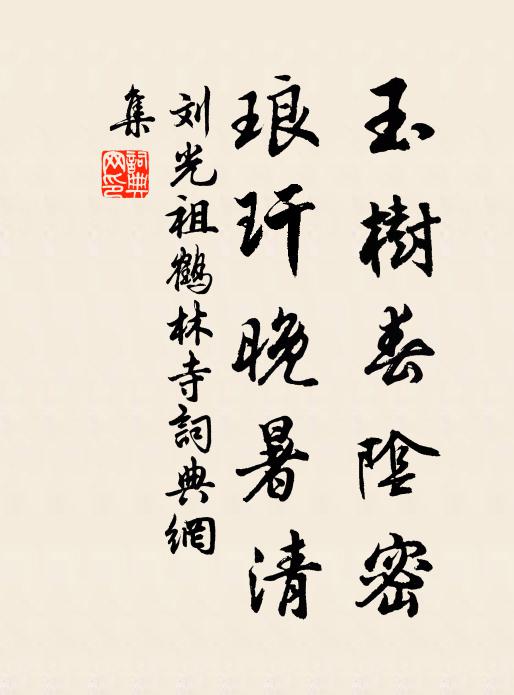 玉樹春陰密
琅玕晚暑清
刘光祖鹤林寺詞典網
集
詞典
网印